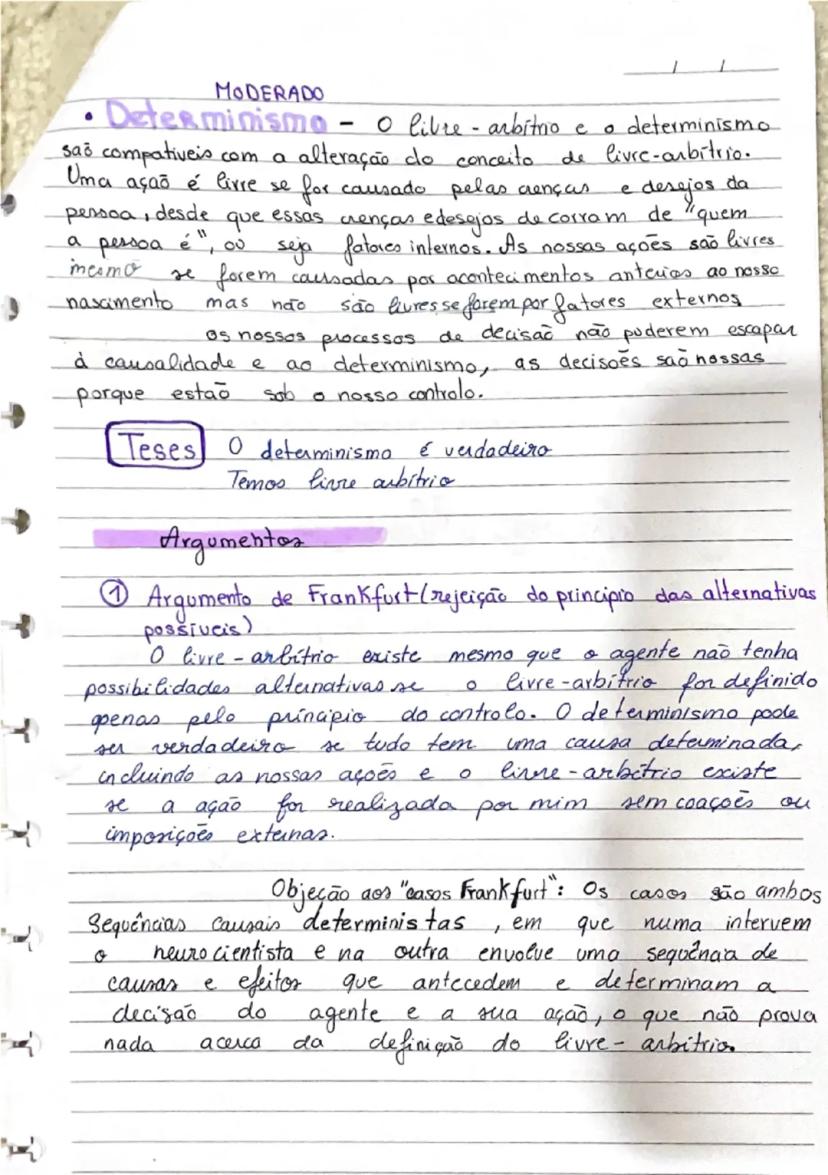 / /
MODERADO
• Determinismo - O livre-arbítrio e o determinismo
saõ compativeis com a alteração do conceito de livre-arbítrio.
Uma açaõ é livre se for causado pelas crenças e desejos da
pessoa, desde que essas crenças e desejos decorram de "quem
a pessoa é", ou seja fatores internos. As nossas ações são livres
mesmo se forem causadas por acontecimentos anteriores ao nosso
nascimento mas não são livres se forem por fatores externos
os nossos processos de decisaõ não puderem escapar
à causalidade e ao determinismo, as decisoẽs saõ nossas
porque estaõ sob o nosso controlo.
Teses O determinismo é verdadeiro
Temos livre arbítrio
Argumentos
① Argumento de Frankfurt (rejeição do principio das alternativas
possíveis)
O livre-arbítrio existe mesmo que o agente não tenha
possibilidades alternativas se o livre-arbítrio for definido
apenas pelo princípio do controlo. O determinismo pode
ser verdadeiro se tudo tem uma causa determinada,
incluindo as nossas açoẽs e o livre-arbítrio existe
se a açaõ for realizada por mim sem coaçoẽs ou
imposiçoẽs externas.
Objeção aos "casos Frankfurt": Os casos são ambos
sequências causais deterministas, em que numa intervem
o neurocientista e na outra envolve uma sequência de
causas e efeitos que antecedem e determinam a
decisão do agente e a sua ação, o que não prova
nada acerca da definição do livre-arbítrio.